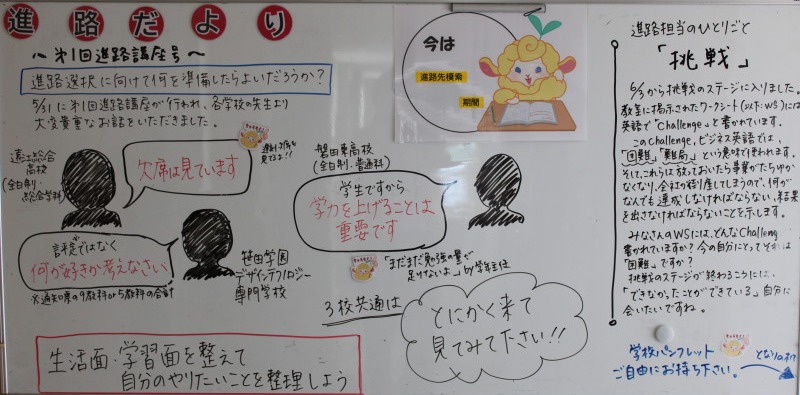 進路だより
～第1回進路講座号～
進路選択に向けて何を準備したらよいだろうか？
5/31に第1回進路講座が行われ、各学校の先生より
大変貴重なお話をいただきました。
遠江総合
高校
(全日制・
総合学科)
欠席は見ています
見てるよ!!
磐田東高校
(全日制・普通科)
学生ですから
学力を上げることは
重要です
評定ではなく
何が好きか考えなさい
※通知表の9教科or5教科の合計
笹田学園
デザインテクノロジー
専門学校
「まだまだ勉強の量が
足りないよ」by学年主任
3校共通は
とにかく来て
見てみて下さい!!
生活面・学習面を整えて
自分のやりたいことを整理しよう
今は
進路先模索
期間
進路担当のひとりごと
「挑戦」
6/3から挑戦のステージに入りました。
教室に掲示されたワークシート(以下:WS)には
英語で"Challenge"と書かれています。
このchallenge、ビジネス英語では、
「困難」「難局」という意味で使われます。
そして、これらは放っておいたら事業がたちゆか
なくなり、会社が倒産してしまうので、何が
なんでも達成しなければならない、結果
を出さなければならないことを示します。
みなさんのWSには、どんなChalleng
書かれていますか？今の自分にとってそれは
「困難」ですか？
挑戦のステージが終わるころには、
「できなかったことができている」自分に
会いたいですね。
学校パンフレット
ご自由にお持ち下さい。
となりの